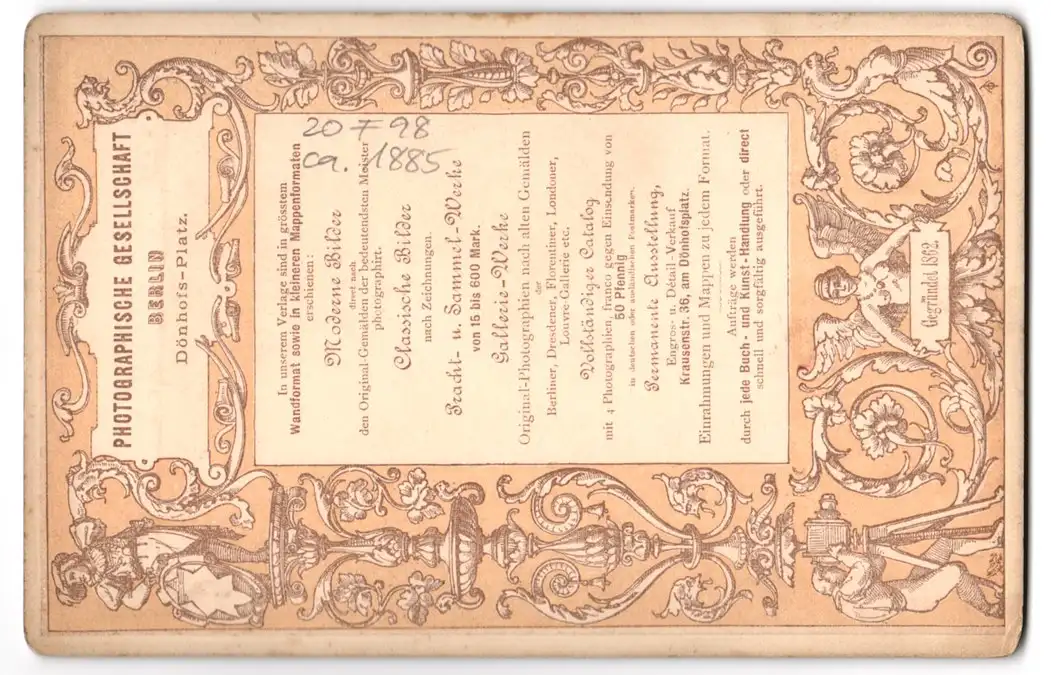 PHOTOGRAPHISCHE GESELLSCHAFT
BERLIN
Dönhofs-Platz.
20 F 98
ca. 1885
In unserem Verlage sind in grösstem
Wandformat sowie in kleineren Mappenformaten
erschienen:
Moderne Bilder
direct nach
den Original-Gemälden der bedeutendsten Meister
photographirt.
Classische Bilder
nach Zeichnungen.
Pracht- u. Sammel-Werke
von 15 bis 600 Mark.
Gallerie-Werke
Original-Photographien nach alten Gemälden
der
Berliner, Dresdener, Florentiner, Londoner,
Louvre-Gallerie etc.
Vollständiger Catalog
mit 4 Photographien, franco gegen Einsendung von
50 Pfennig
in deutschen oder ausländischen Postmarken.
Permanente Ausstellung,
Engros- u. Détail-Verkauf
Krausenstr. 36, am Dönhofsplatz.
Einrahmungen und Mappen zu jedem Format.
Aufträge werden
durch jede Buch- und Kunst-Handlung oder direct
schnell und sorgfältig ausgeführt.
Gegründet 1862.